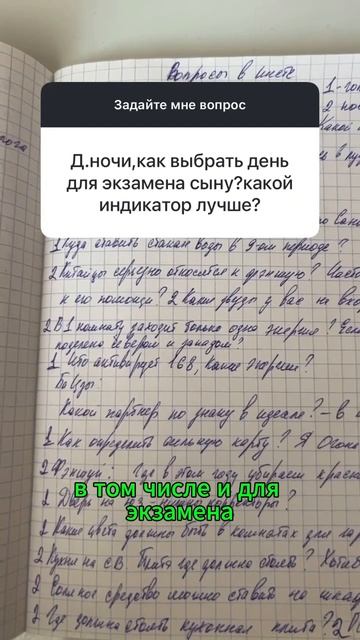 Вопросы в инсте
Задайте мне вопрос
Д.ночи,как выбрать день
для экзамена сыну?какой
индикатор лучше?
1 Куда ставить стакан воды в 9-ом периоде?
2 Китайцы серьезно относятся к фэншую? Часто
к его помощи? 2 Какие звезды у вас на вхо
2 В 1 комнату заходит только одна энергия? Если
поделена севером и западом?
1 Что активирует 168, какие энергии?
БаЦзы:
Какой партнер по знаку в идеале? - в
1 Как определить сильную карту? Я Огонь
2 Фэншуй: Где в этом году убираем красн
в том числе и для
экзамена
2 Дверь на
1 Какие цвета должны быть в комнатах для
2 Кухня на СВ. Плита где должна стоять?
2 Соляное средство можно ставить на шка
2 Где должна стоять кухонная плита?